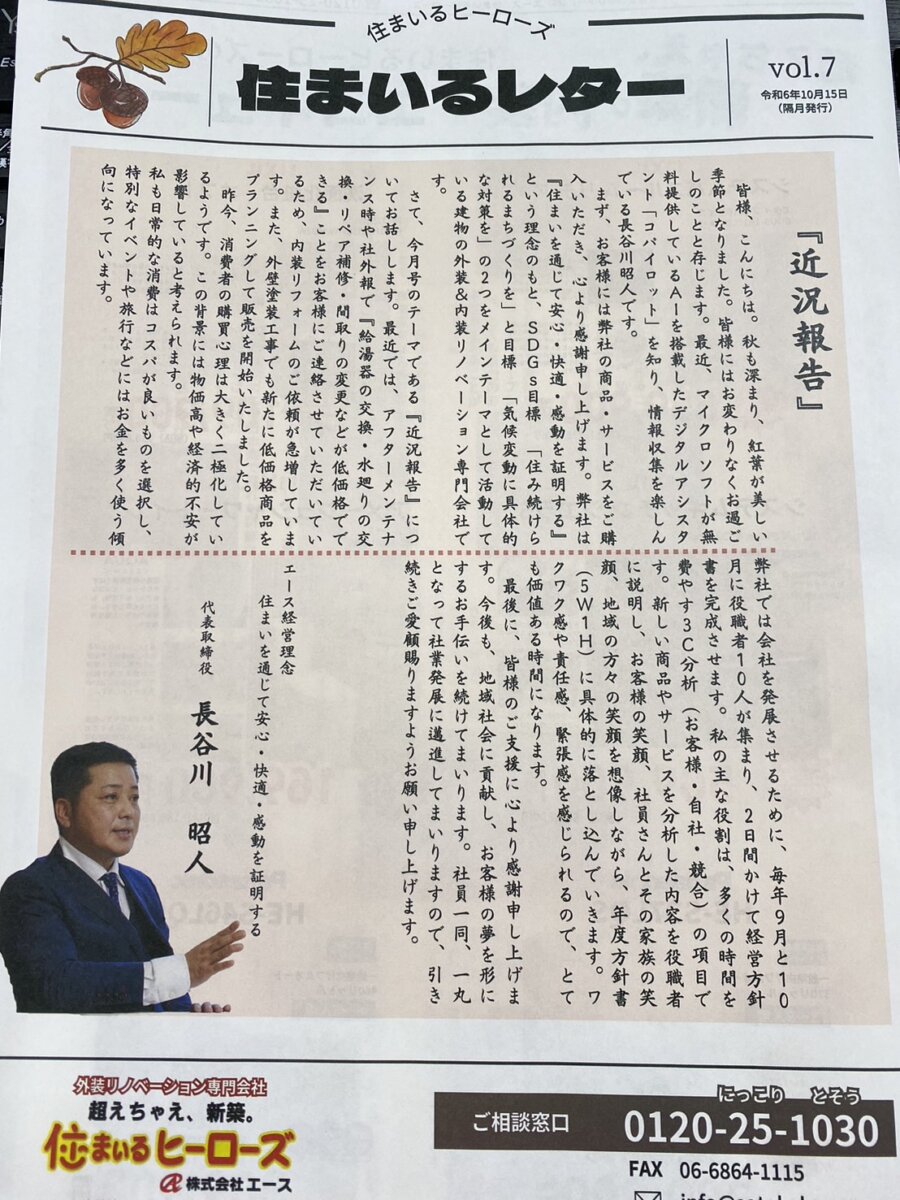 住まいるヒーローズ
住まいるレター
vol.7
令和6年10月15日
（隔月発行）
『近況報告』
皆様、こんにちは。秋も深まり、紅葉が美しい
季節となりました。皆様にはお変わりなくお過ご
しのことと存じます。最近、マイクロソフトが無
料提供しているAIを搭載したデジタルアシスタ
ント「コパイロット」を知り、情報収集を楽しん
でいる長谷川昭人です。
まず、お客様には弊社の商品・サービスをご購
入いただき、心より感謝申し上げます。弊社は
『住まいを通じて安心・快適・感動を証明する』
という理念のもと、SDGs目標 「住み続けら
れるまちづくりを」と目標 「気候変動に具体的
な対策を」の2つをメインテーマとして活動して
いる建物の外装&内装リノベーション専門会社で
す。
さて、今月号のテーマである『近況報告』につ
いてお話しします。最近では、アフターメンテナ
ンス時や社外報で『給湯器の交換・水廻りの交
換・リペア補修・間取りの変更などが低価格でで
きる』ことをお客様にご連絡させていただいてい
るため、内装リフォームのご依頼が急増していま
す。また、外壁塗装工事でも新たに低価格商品を
プランニングして販売を開始いたしました。
昨今、消費者の購買心理は大きく二極化してい
るようです。この背景には物価高や経済的不安が
影響していると考えられます。
私も日常的な消費はコスパが良いものを選択し、
特別なイベントや旅行などにはお金を多く使う傾
向になっています。
弊社では会社を発展させるために、毎年9月と10
月に役職者10人が集まり、2日間かけて経営方針
書を完成させます。私の主な役割は、多くの時間を
費やす3C分析（お客様・自社・競合）の項目で
す。新しい商品やサービスを分析した内容を役職者
に説明し、お客様の笑顔、社員さんとその家族の笑
顔、地域の方々の笑顔を想像しながら、年度方針書
（5W1H）に具体的に落とし込んでいきます。ワ
クワク感や責任感、緊張感を感じられるので、とて
も価値ある時間になります。
最後に、皆様のご支援に心より感謝申し上げま
す。今後も、地域社会に貢献し、お客様の夢を形に
するお手伝いを続けてまいります。社員一同、一丸
となって社業発展に邁進してまいりますので、引き
続きご愛顧賜りますようお願い申し上げます。
エース経営理念
住まいを通じて安心・快適・感動を証明する
代表取締役 長谷川 昭人
外装リノベーション専門会社
超えちゃえ、新築。
住まいるヒーローズ
株式会社エース
ご相談窓口
にっこり とそう
0120-25-1030
FAX 06-6864-1115